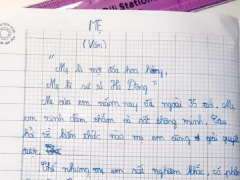 Station
MẸ
(Văn)
"Mẹ là một đóa hoa hồng,
Mẹ là sư tử Hà Đông"
Mẹ của em năm nay đã ngoài 35 rồi. Mẹ
em xinh đẹp và rất thông minh.
hỏi về kiến thức nào mẹ em cũng giải quyết
được.
Thế nhưng mẹ em rất nghiêm khắc, có phần